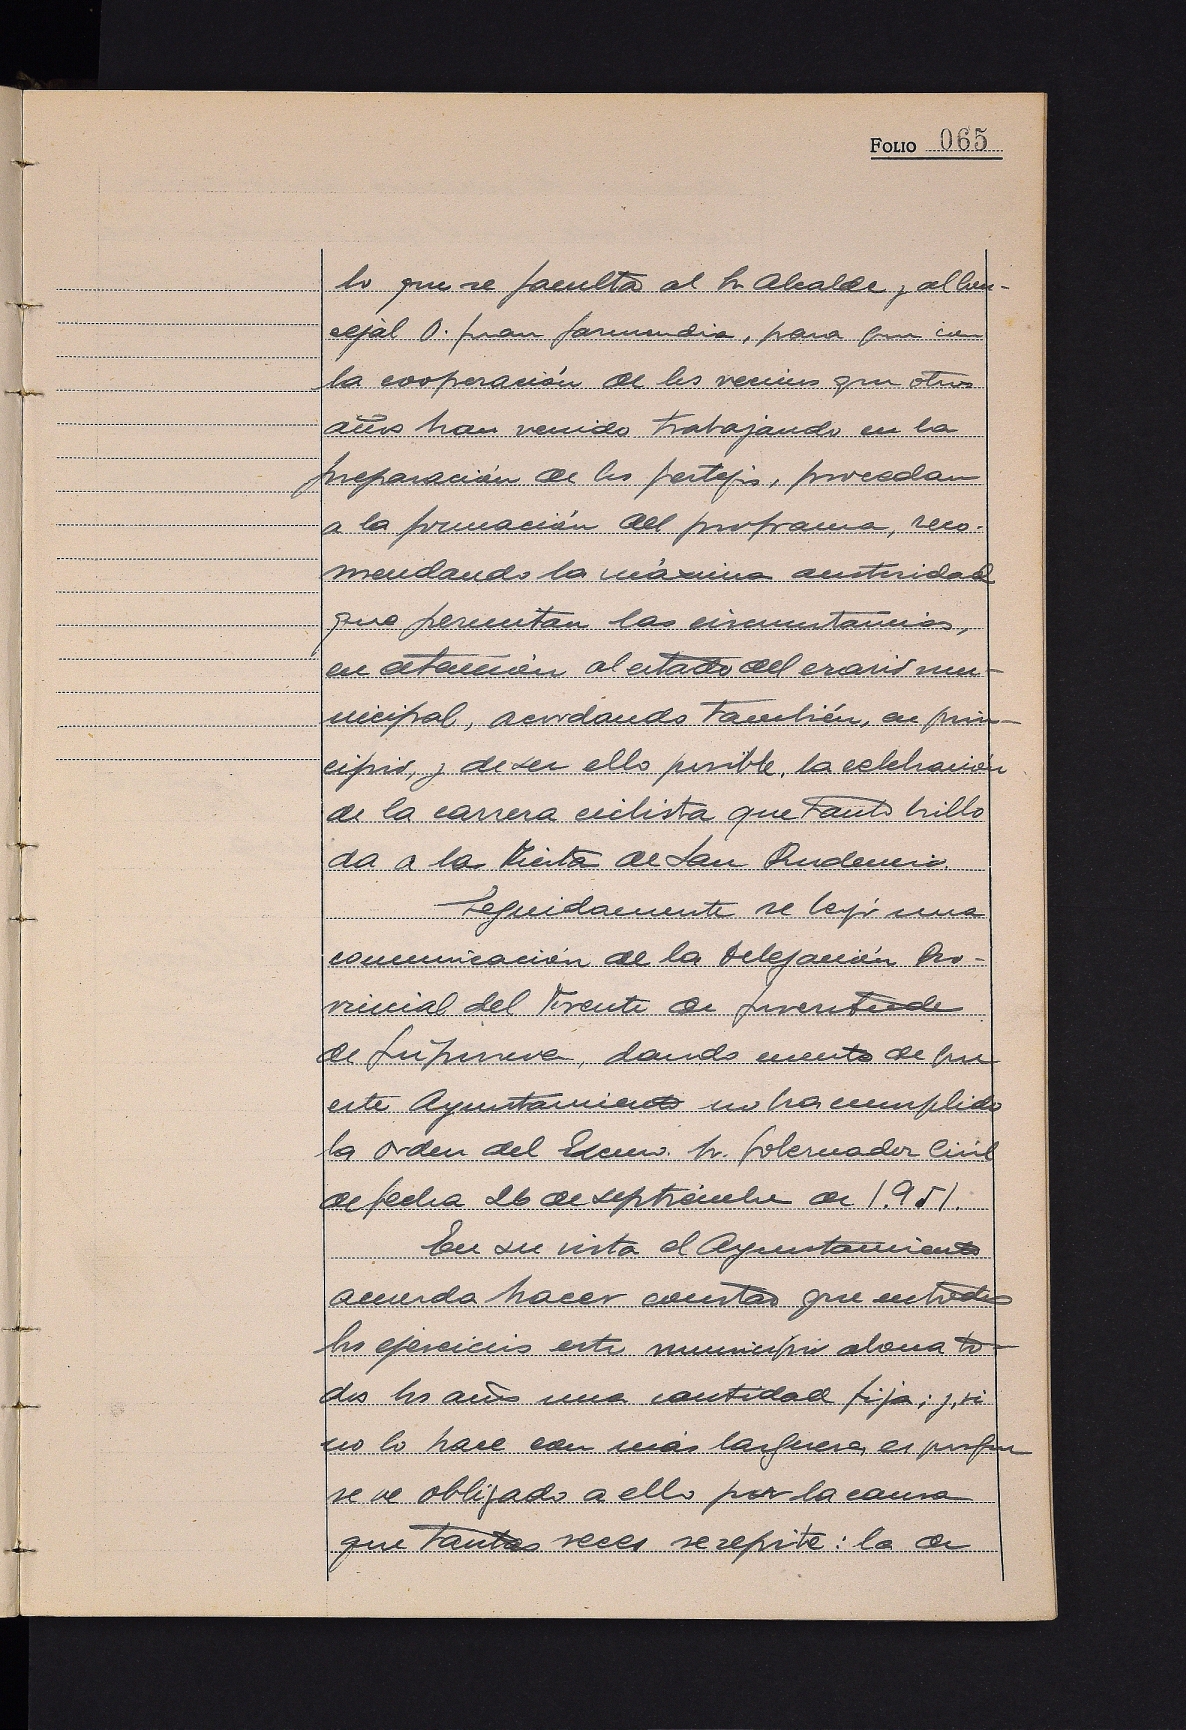 Folio 065
lo que se faculta al Sr Alcalde y al Con-
cejal D. Juan Garmendia, para que con
la cooperación de los vecinos que otros
años han venido trabajando en la
preparación de los festejos, procedan
a la formación del programa, reco-
mendando la máxima austeridad
que permitan las circunstancias,
en atención al estado del erario mu-
nicipal, acordando también, en prin-
cipio, y de ser ello posible, la celebración
de la carrera ciclista que tanto brillo
da a la Fiesta de San Prudencio.
Seguidamente se leyó una
comunicación de la Delegación Pro-
vincial del Frente de Juventudes
de Guipuzcoa, dando cuenta de que
este Ayuntamiento no ha cumplido
la orden del Excmo. Sr. Gobernador Civil
de fecha 26 de septiembre de 1.951.
En su vista el Ayuntamiento
acuerda hacer constar que en todos
los ejercicios este municipio abona to-
dos los años una cantidad fija; y, si
no lo hace con más largueza, es porque
se ve obligado a ello por la causa
que tantas veces se repite: la de